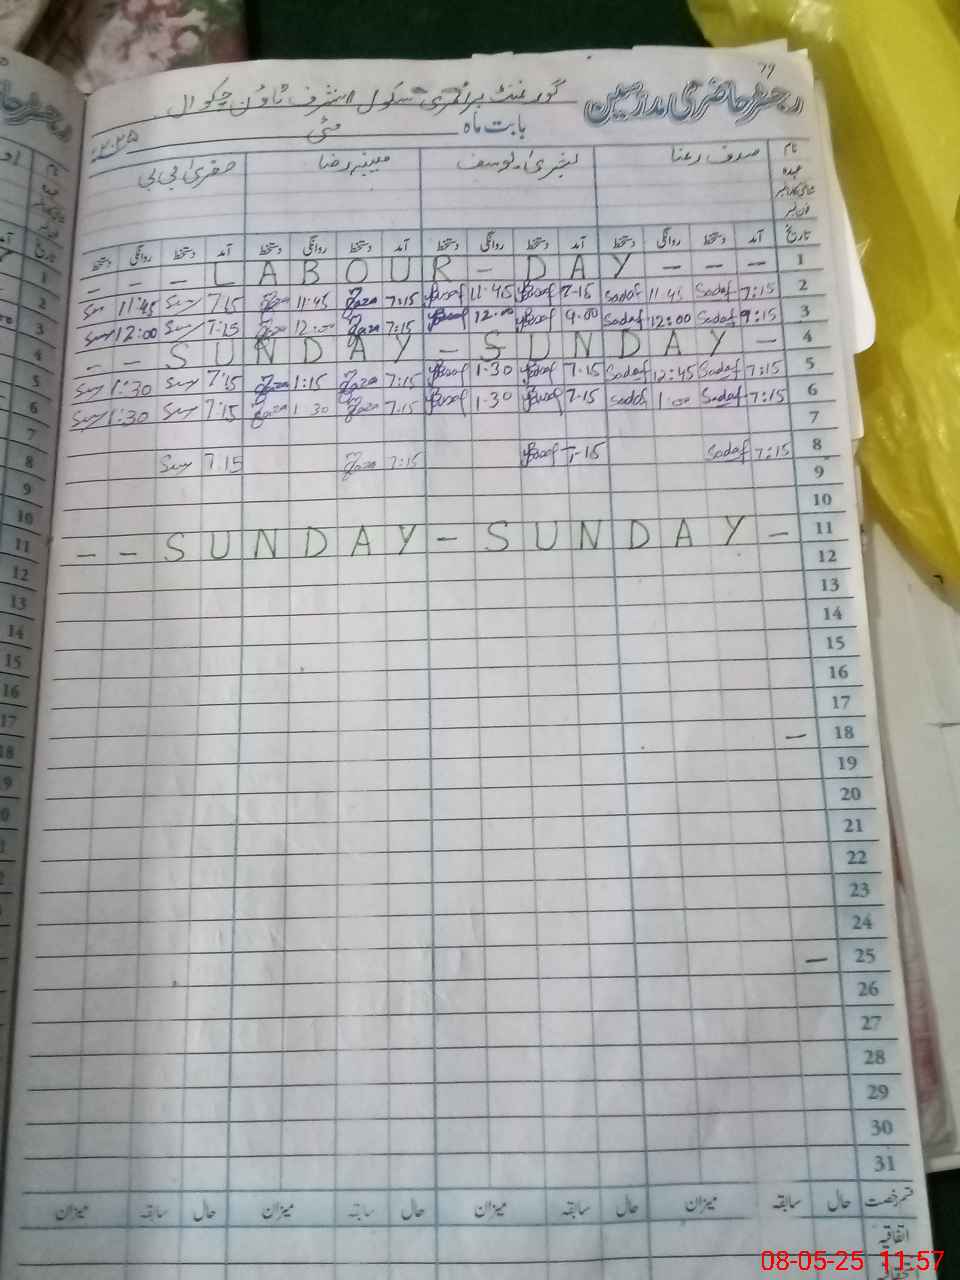 79
رجسٹر حاضری مدرسین
گورنمنٹ پرائمری سکول اشرف ٹاؤن چکوال
بابت ماہ مئی ۲۰۲۵
نام صدف رعنا بشریٰ یوسف مبینہ رضا صغریٰ بی بی
عہدہ
فون نمبر
تاریخ آمد دستخط روانگی دستخط آمد دستخط روانگی دستخط آمد دستخط روانگی دستخط آمد دستخط روانگی دستخط
- - - L A B O U R - D A Y - - - 1
11:45 7:15 11:45 7:15 Yusaf 11:45 Yusaf 7-15 Sadaf 11:45 Sadaf 7:15 2
12:00 7:15 12:00 7:15 Yusaf 12:00 Yusaf 9.00 Sadaf 12:00 Sadaf 9:15 3
- - S U N D A Y - S U N D A Y - 4
1:30 7:15 1:15 7:15 Yusaf 1-30 Yusaf 7-15 Sadaf 12:45 Sadaf 7:15 5
1:30 7:15 1:30 7:15 Yusaf 1-30 Yusaf 7-15 Sadaf 1:00 Sadaf 7:15 6
7
7:15 7:15 Yusaf 7-15 Sadaf 7:15 8
9
10
- - S U N D A Y - S U N D A Y - 11
12
13
14
15
16
17
- 18
19
20
21
22
23
24
- 25
26
27
28
29
30
31
قسم رخصت حال سابقہ میزان حال سابقہ میزان حال سابقہ میزان حال سابقہ میزان
اتفاقیہ
08-05-25 11:57